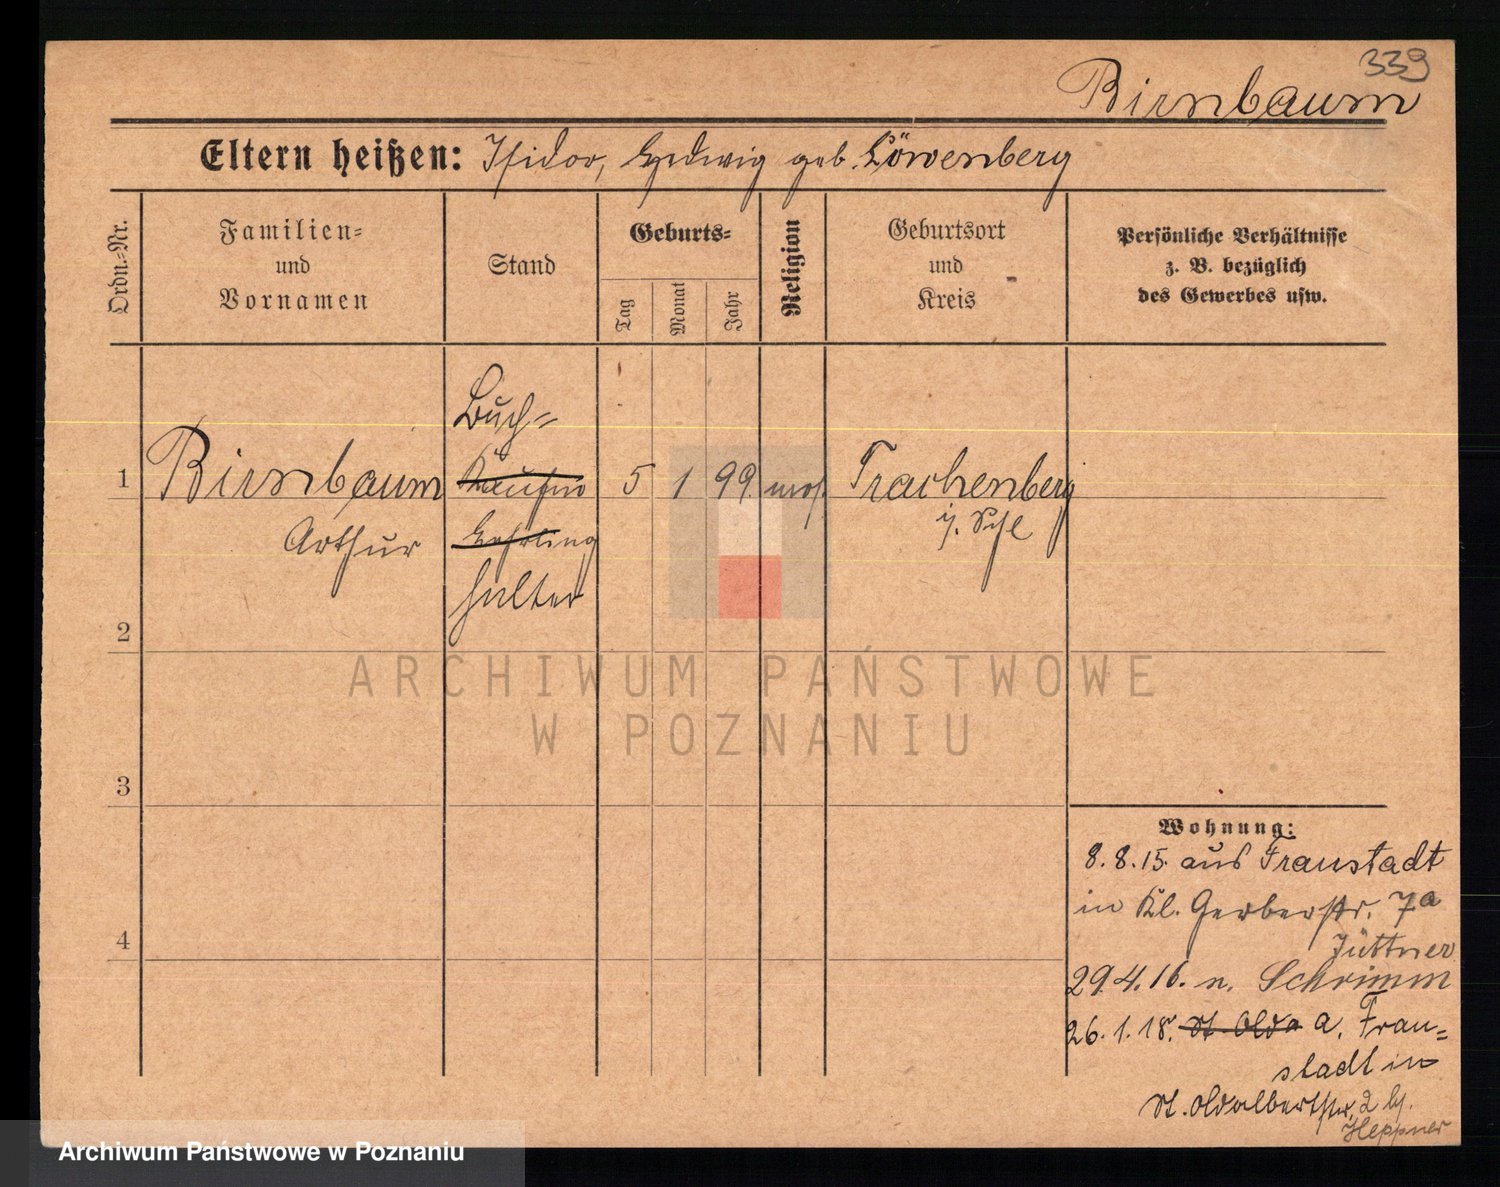 339
Birnbaum
Eltern heißen: Isidor, Hedwig geb. Löwenberg
Ordn.-Nr.
Familien-
und
Vornamen
Stand
Geburts-
Tag
Monat
Jahr
Religion
Geburtsort
und
Kreis
Persönliche Verhältnisse
z. B. bezüglich
des Gewerbes usw.
Buch-
1 Birnbaum Kaufm 5 1 99. mos. Trachenberg
i. Schl
Arthur Lehrling
halter
2
3
4
Wohnung:
8.8.15. aus Fraustadt
in Kl. Gerberstr. 7a
Jüttner
29.4.16. n. Schrimm
26.1.18. St. Ad a. Frau-
stadt in
St. Adalbertstr. 2 b/.
Heppner
ARCHIWUM PAŃSTWOWE
W POZNANIU
Archiwum Państwowe w Poznaniu